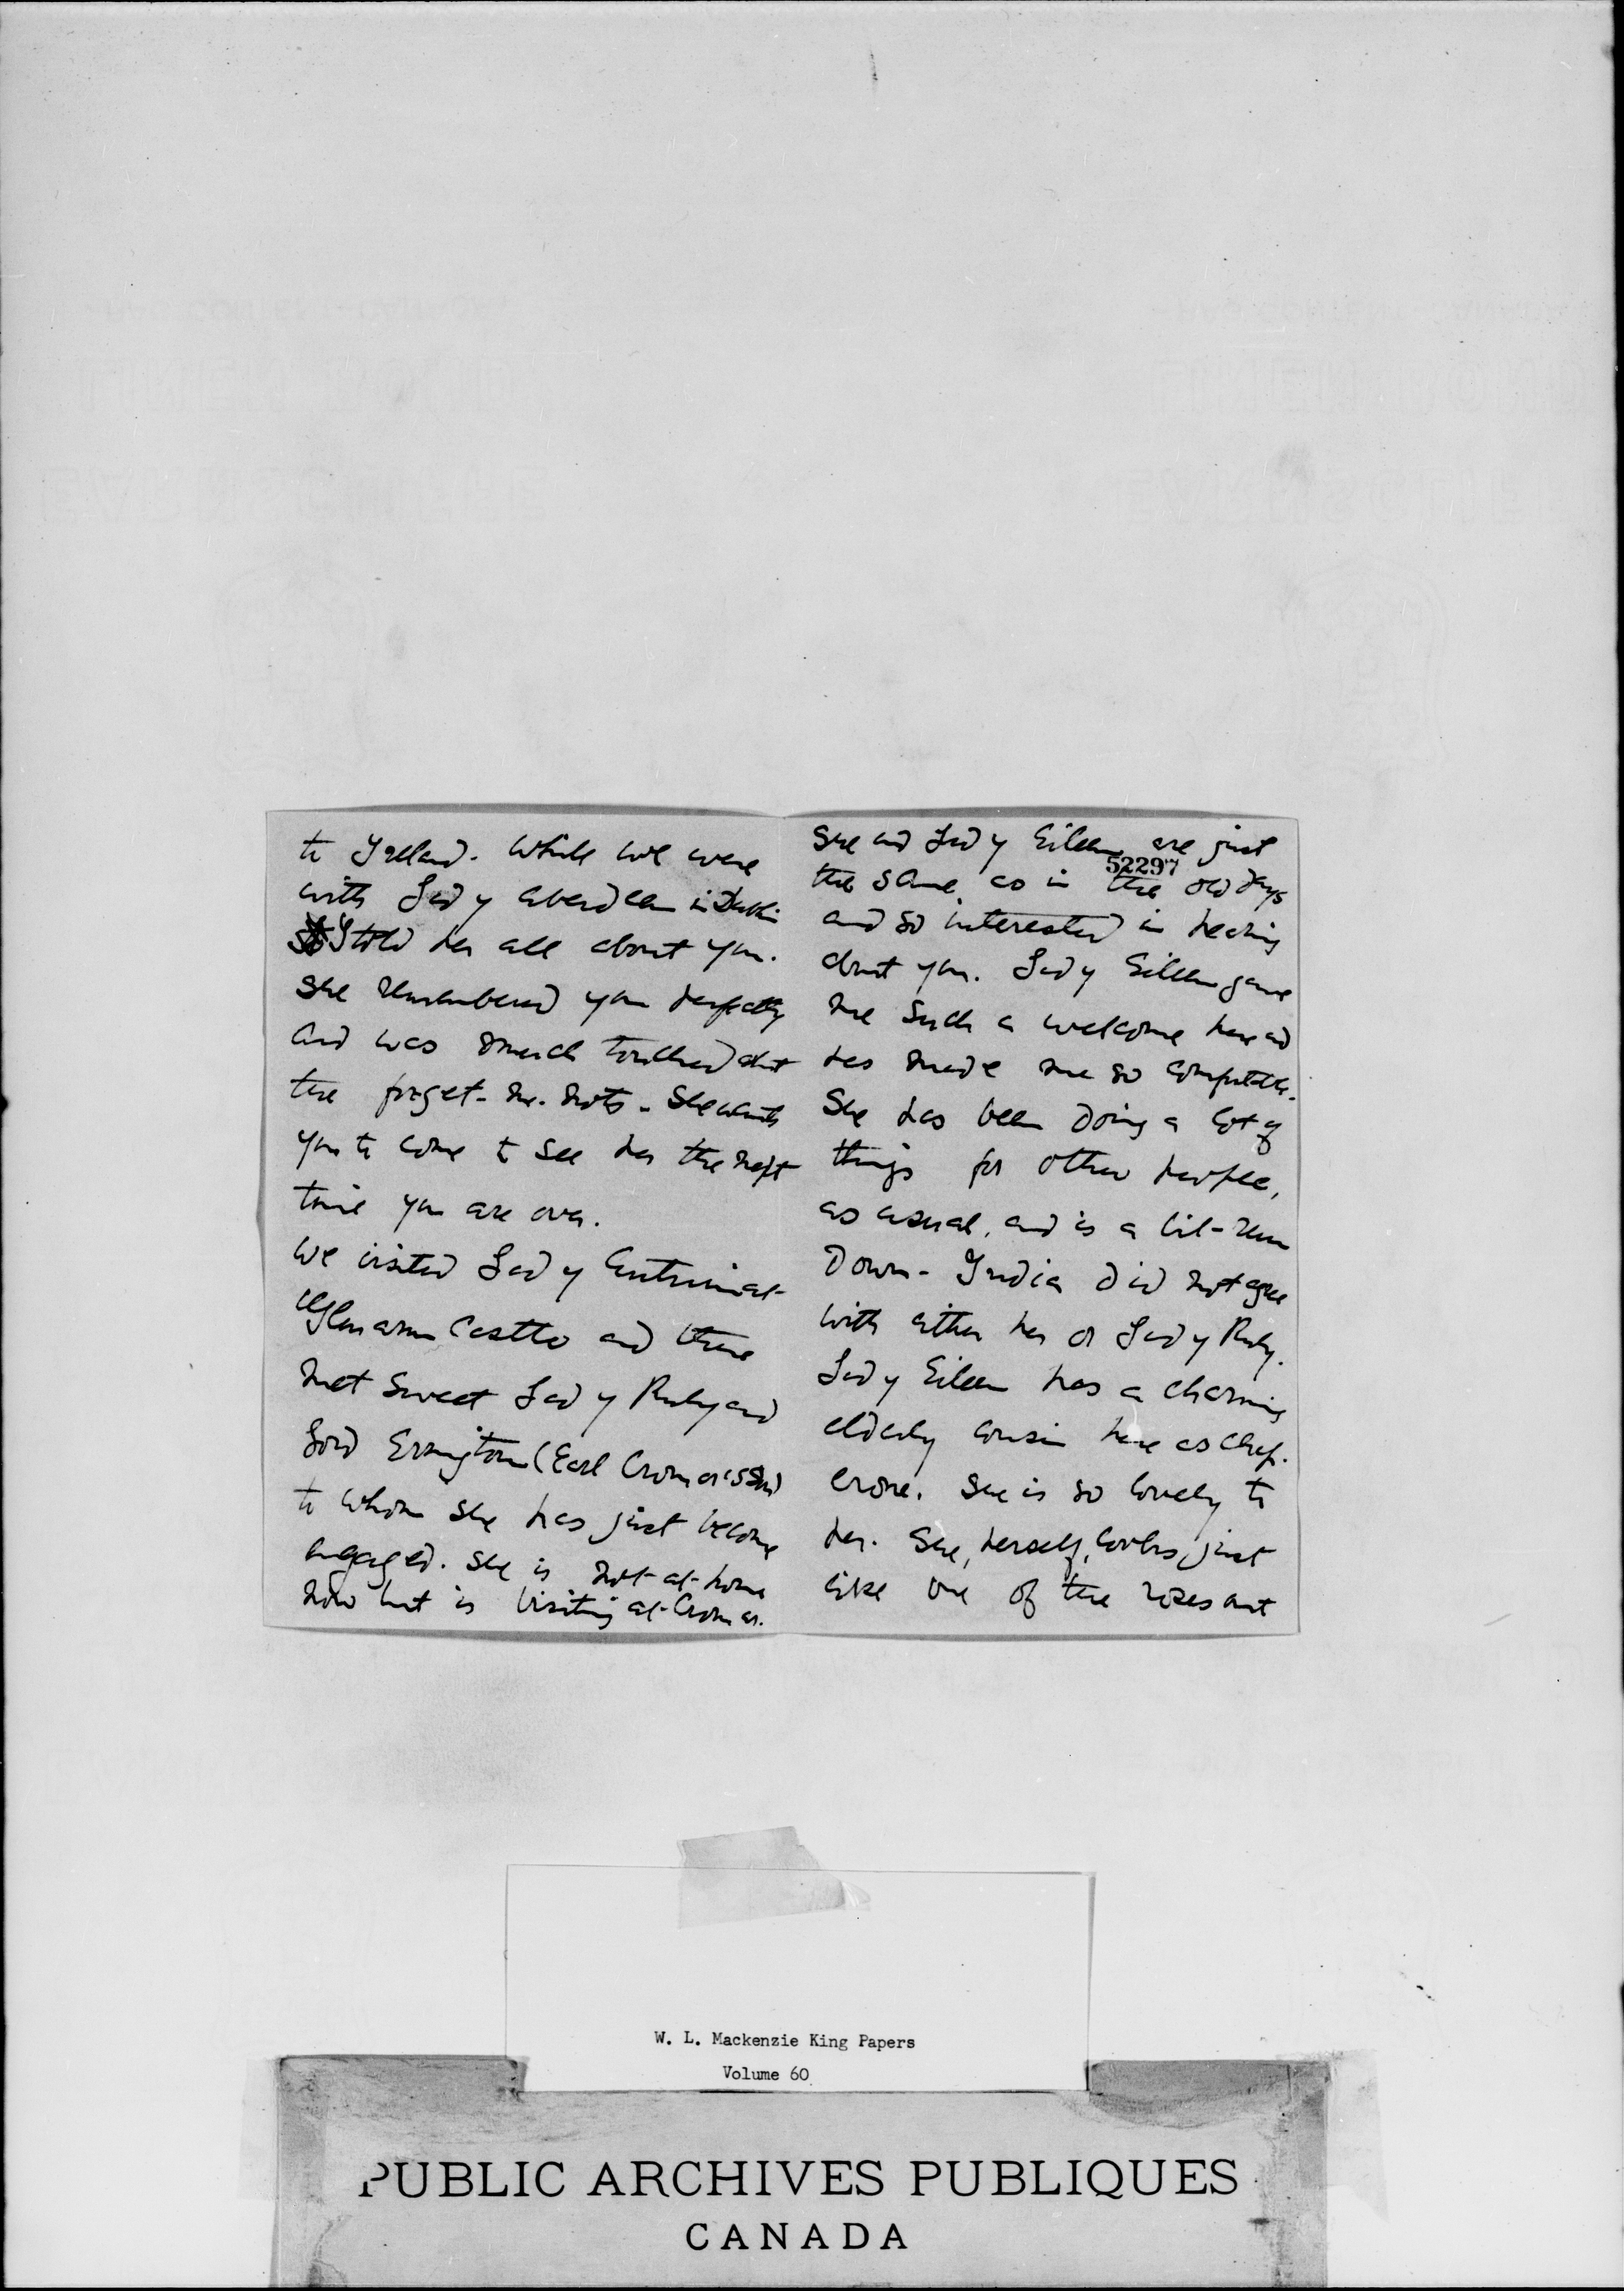 to Ireland. While we were
with Lady Aberdeen in Dublin
I told her all about you.
She remembered you perfectly
and was much touched about
the forget-me-nots. She wants
you to come to see her the next
time you are over.
We visited Lady Antrim at
Glenarm Castle and there
met sweet Lady Ruby and
Lord Errington (Earl Cromer's son)
to whom she has just become
engaged. She is not at home
now but is visiting at Cromer.
She and Lady Eileen are just
52297
the same as in the old days
and so interested in hearing
about you. Lady Eileen gave
me such a welcome here and
has made me so comfortable.
She has been doing a lot of
things for other people,
as usual, and is a bit run
down. India did not agree
with either her or Lady Ruby.
Lady Eileen has a charming
elderly cousin here as chap-
erone. She is so lovely to
her. She, herself, looks just
like one of the roses out
W. L. Mackenzie King Papers
Volume 60
PUBLIC ARCHIVES PUBLIQUES
CANADA